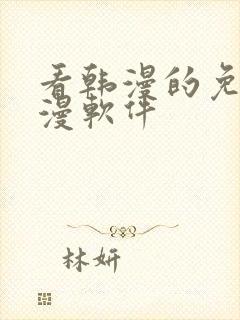 看韩漫的免
漫软件
林妍